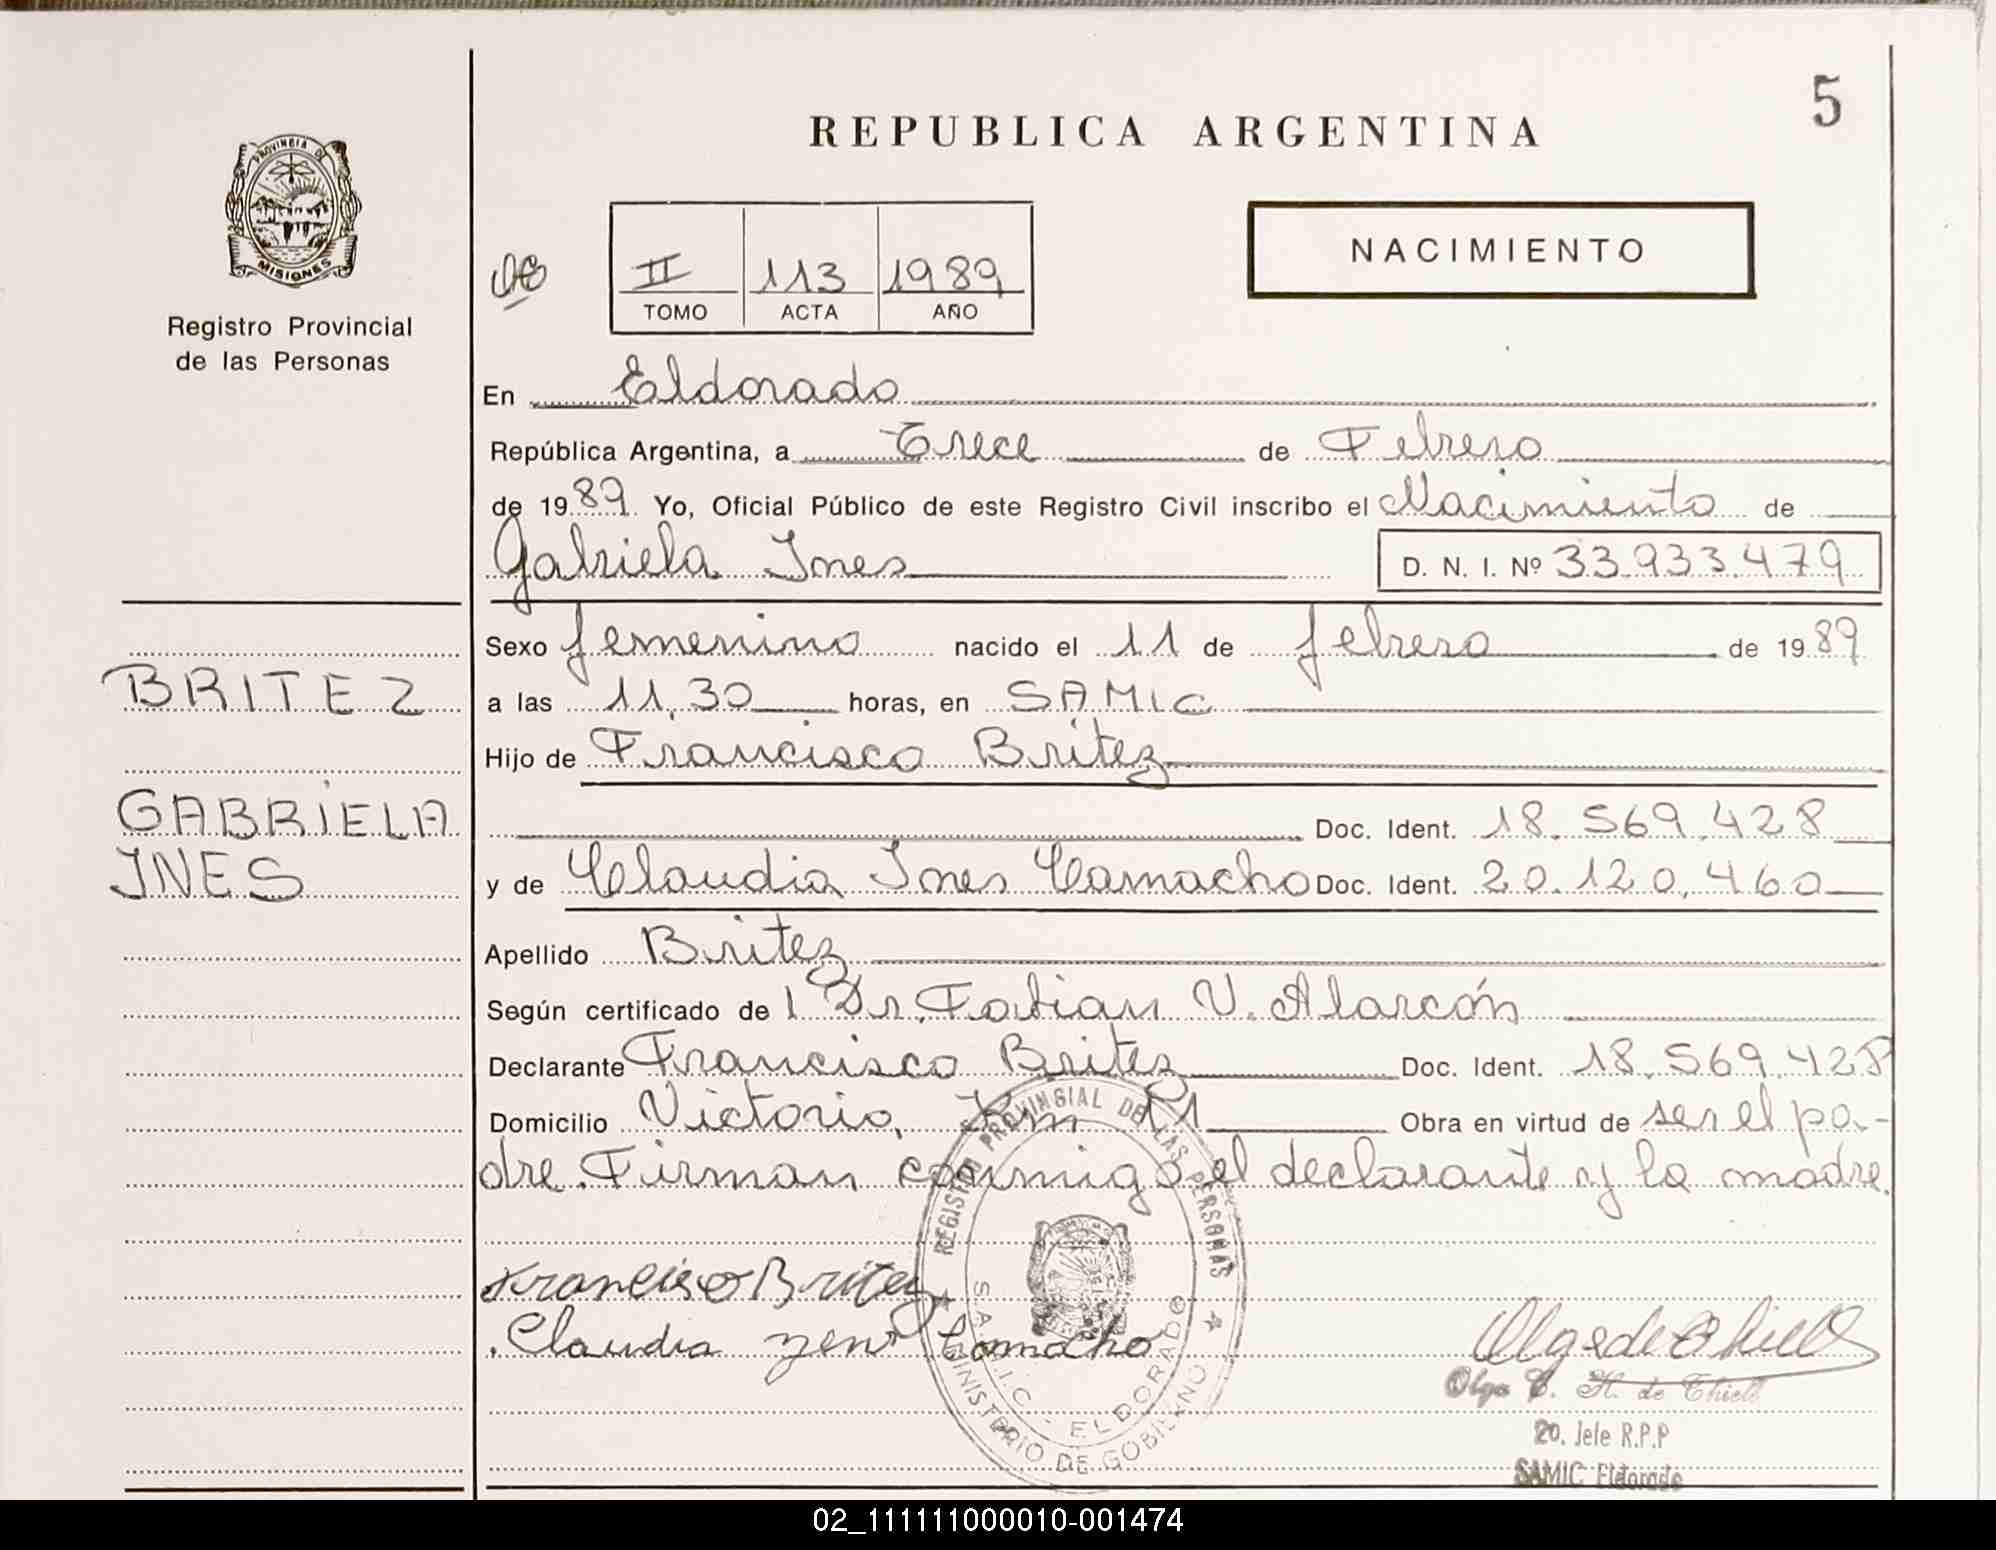 5
REPUBLICA ARGENTINA
PROVINCIA DE
MISIONES
Registro Provincial
de las Personas
II 113 1989
TOMO ACTA AÑO
NACIMIENTO
En Eldorado
República Argentina, a Trece de Febrero
de 1989 Yo, Oficial Público de este Registro Civil inscribo el Nacimiento de
Gabriela Ines D. N. I. Nº 33.933.479
Sexo femenino nacido el 11 de febrero de 1989
BRITEZ
a las 11,30 horas, en SAMIC
Hijo de Francisco Britez
GABRIELA
Doc. Ident. 18.569.428
INES
y de Claudia Ines Camacho Doc. Ident. 20.120.460
Apellido Britez
Según certificado de l Dr. Fabian V. Alarcón
Declarante Francisco Britez Doc. Ident. 18.569.428
Domicilio Victoria, Km 11 Obra en virtud de ser el pa-
dre. Firman conmigo el declarante y la madre.
REGISTRO PROVINCIAL DE LAS PERSONAS
S.A.M.I.C. - ELDORADO
MINISTERIO DE GOBIERNO
Francisco Britez
Claudia Camacho
Olga C. H. de Thiell
20. Jefe R.P.P
SAMIC Eldorado
02_111111000010-001474